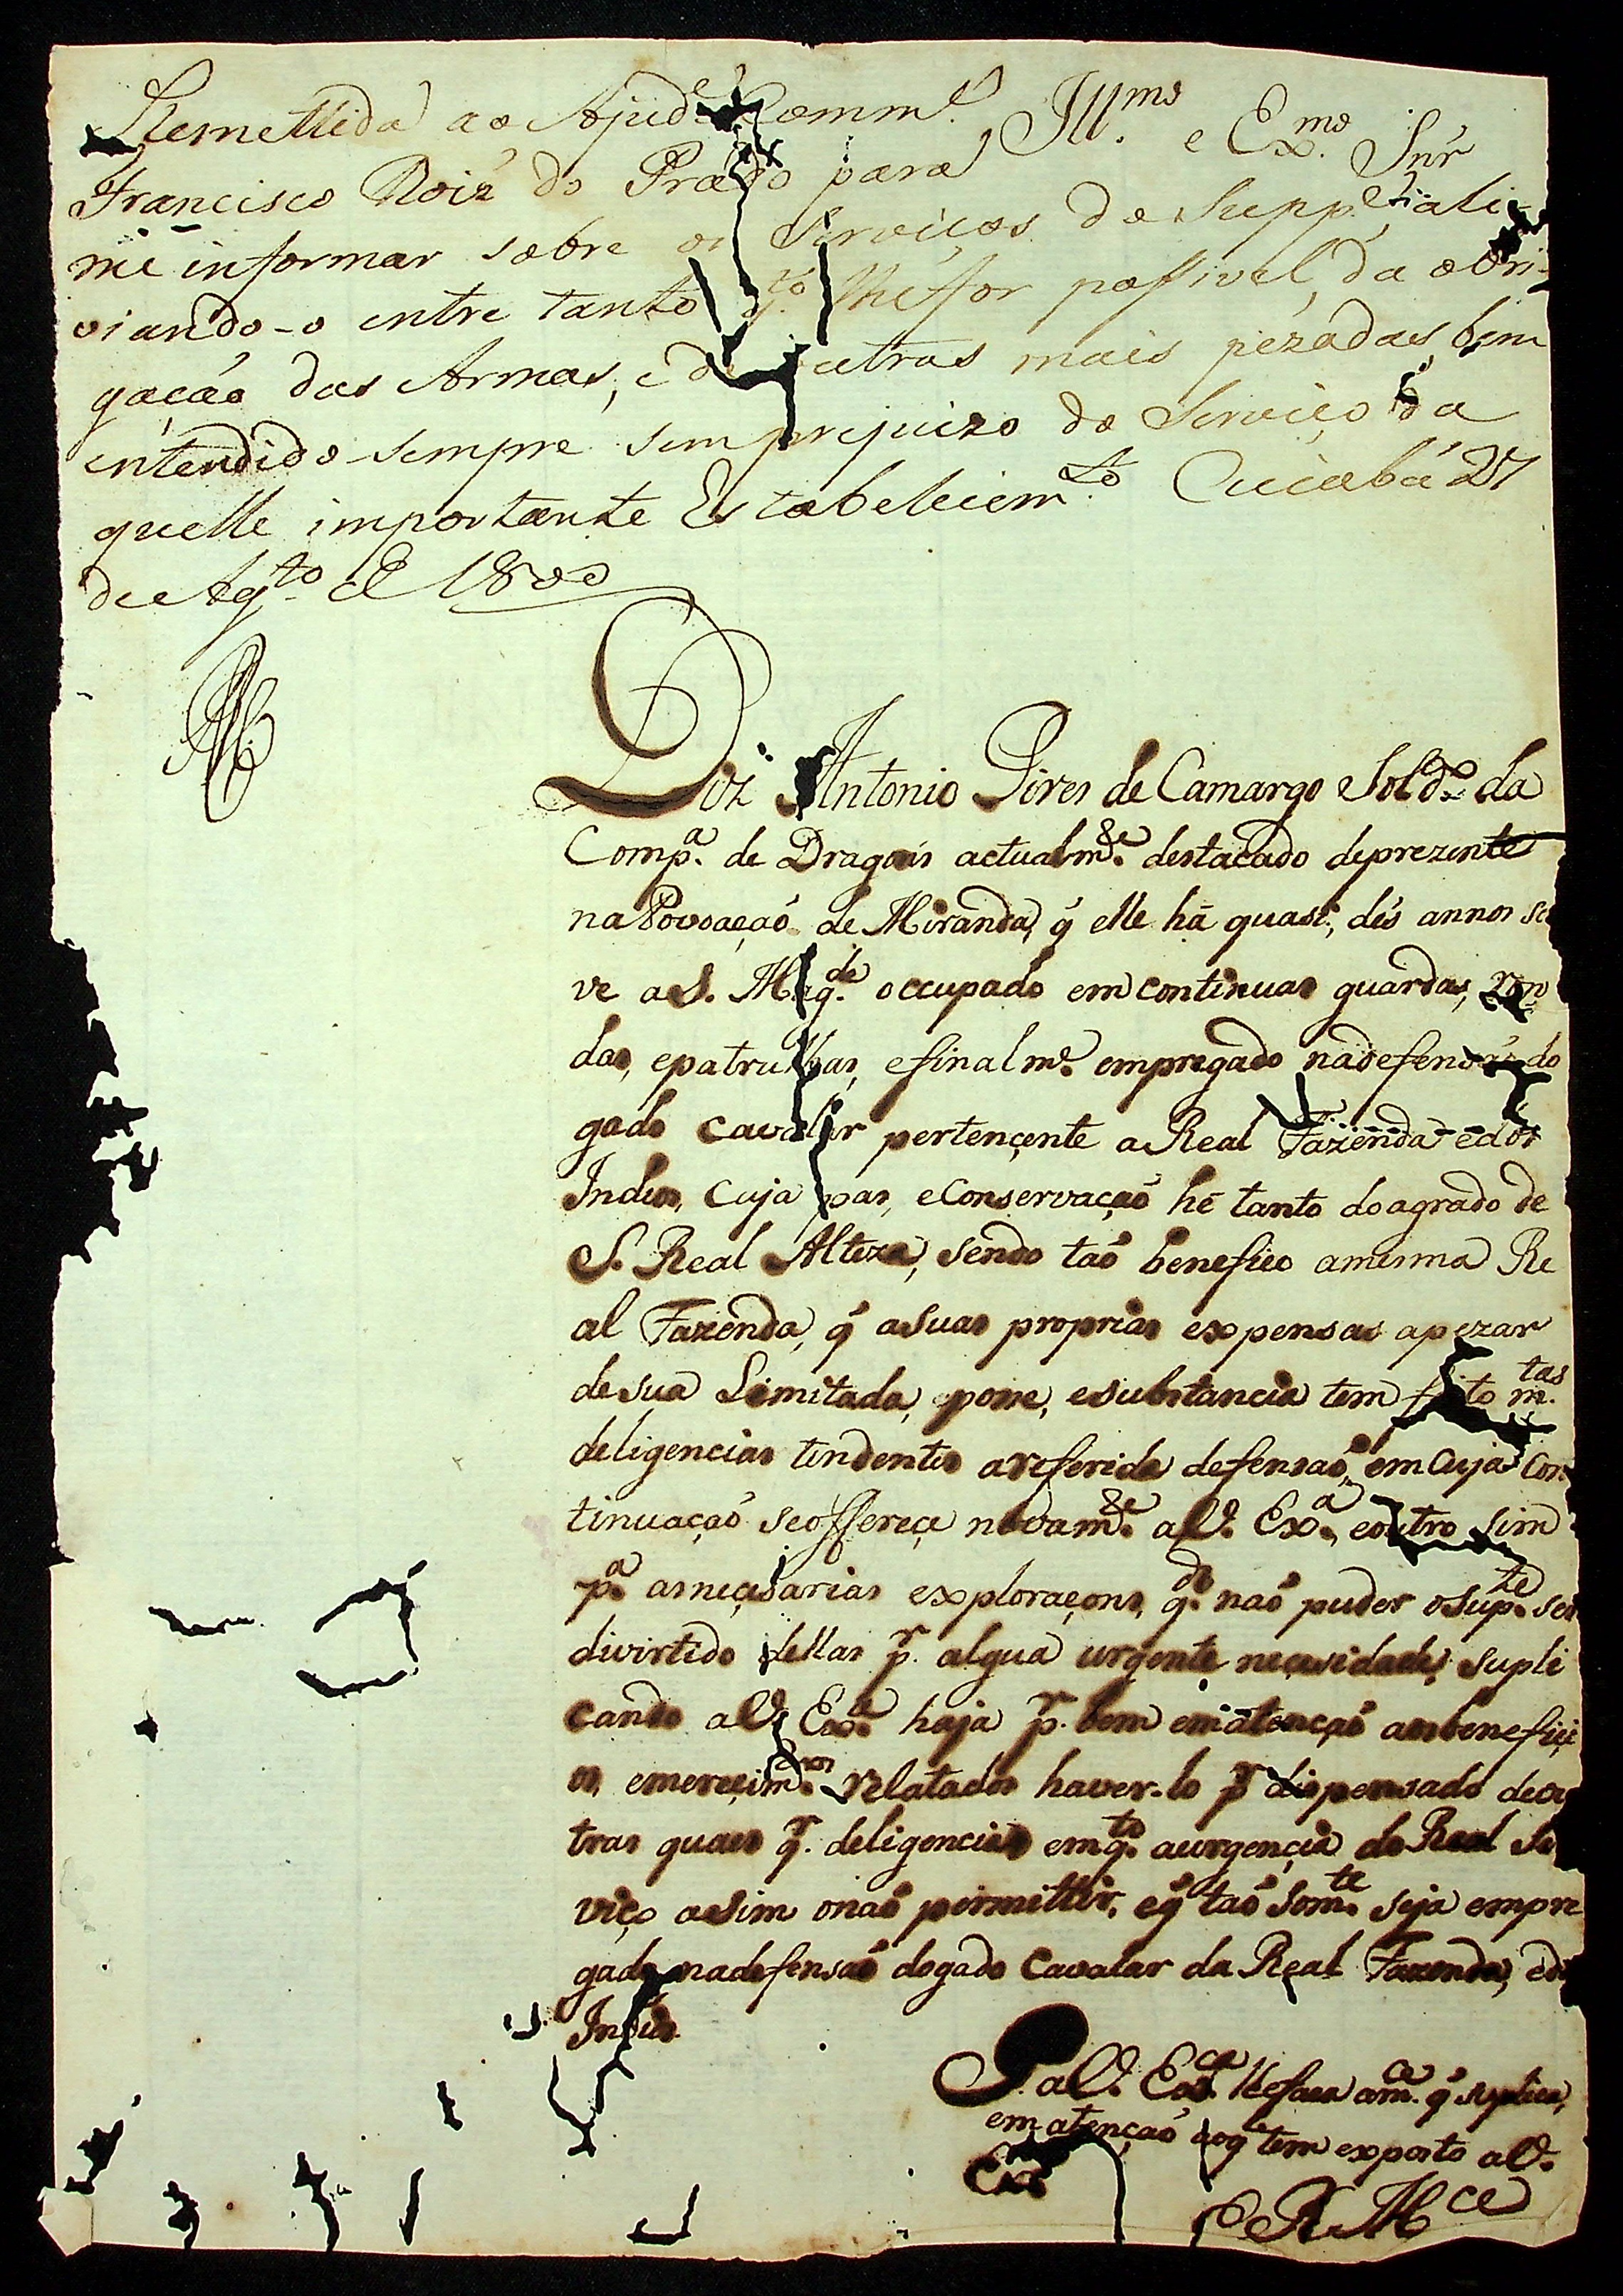 Remettida ao Ajud.e Comm.e
Francisco Roiz do Prado para
me informar sobre os Serviços do Supp.e, ali-
viando-o entre tanto q.to lhe for possivel, da obri-
gação das Armas, e de outras mais pezadas, bem
entendido sempre sem prejuizo do Serviço da
quelle importante Estabelecim.to Cuiabá 27
de Ag.to de 1800
Ill.mo e Ex.mo Snr
Diz Antonio Pires de Camargo Sold.o da
Comp.a de Dragoins actualm.e destacado deprezente
na Povoação de Miranda, q̃ elle há quasi, dés annos se
ve a S. Mag.de occupado em continuas guardas, ron
das, epatrulhas, efinalm.e empregado nadefensão do
gado cavalar pertençente a Real Fazenda edos
Indios, cuja pas, eConservação hé tanto doagrado de
S. Real Alteza, sendo tão benefico amesma Re
al Fazenda, q̃ aSuas proprias expensas apezar
desua Limitada, posse, esubstancia tem feito m.tas
deligencias tendentes areferida defensão, em Cuja Con
tinuação seoffereçe novam.e aV. Ex.a, eoutro sim
p.a asneçesarias exploraçons, q.do não puder oSup.te ser
divirtido dellas p.r algua urgente neçesidade, supli
cando aV. Ex.a haja p.r bem ematenção aosbenefiçi
os, emereçim.tos relatados haver-lo p.r dispensado deou
tras quaes q.r deligencias emq.to aurgençia do Real Se
viço asim onão permittir, eq̃ tão som.te seja empre
gado nadefensão dogado Cavalar da Real Fazenda, edos
Indios
P. aV. Ex.ca lhefaça am.ce q̃ suplica,
ematenção aoq̃ tem exposto aV.
Ex.a
E R M.ce